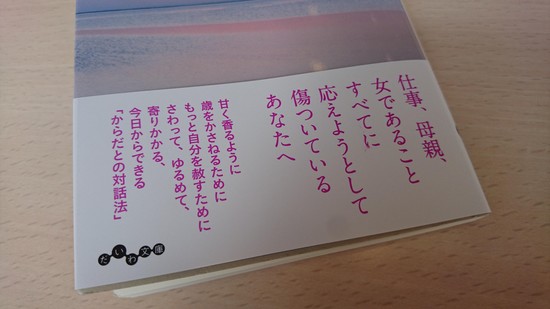 仕事、母親、
女であること
すべてに
応えようとして
傷ついている
あなたへ
甘く香るように
歳をかさねるために
もっと自分を赦すために
さわって、ゆるめて、
寄りかかる、
今日からできる
「からだとの対話法」
だいわ文庫